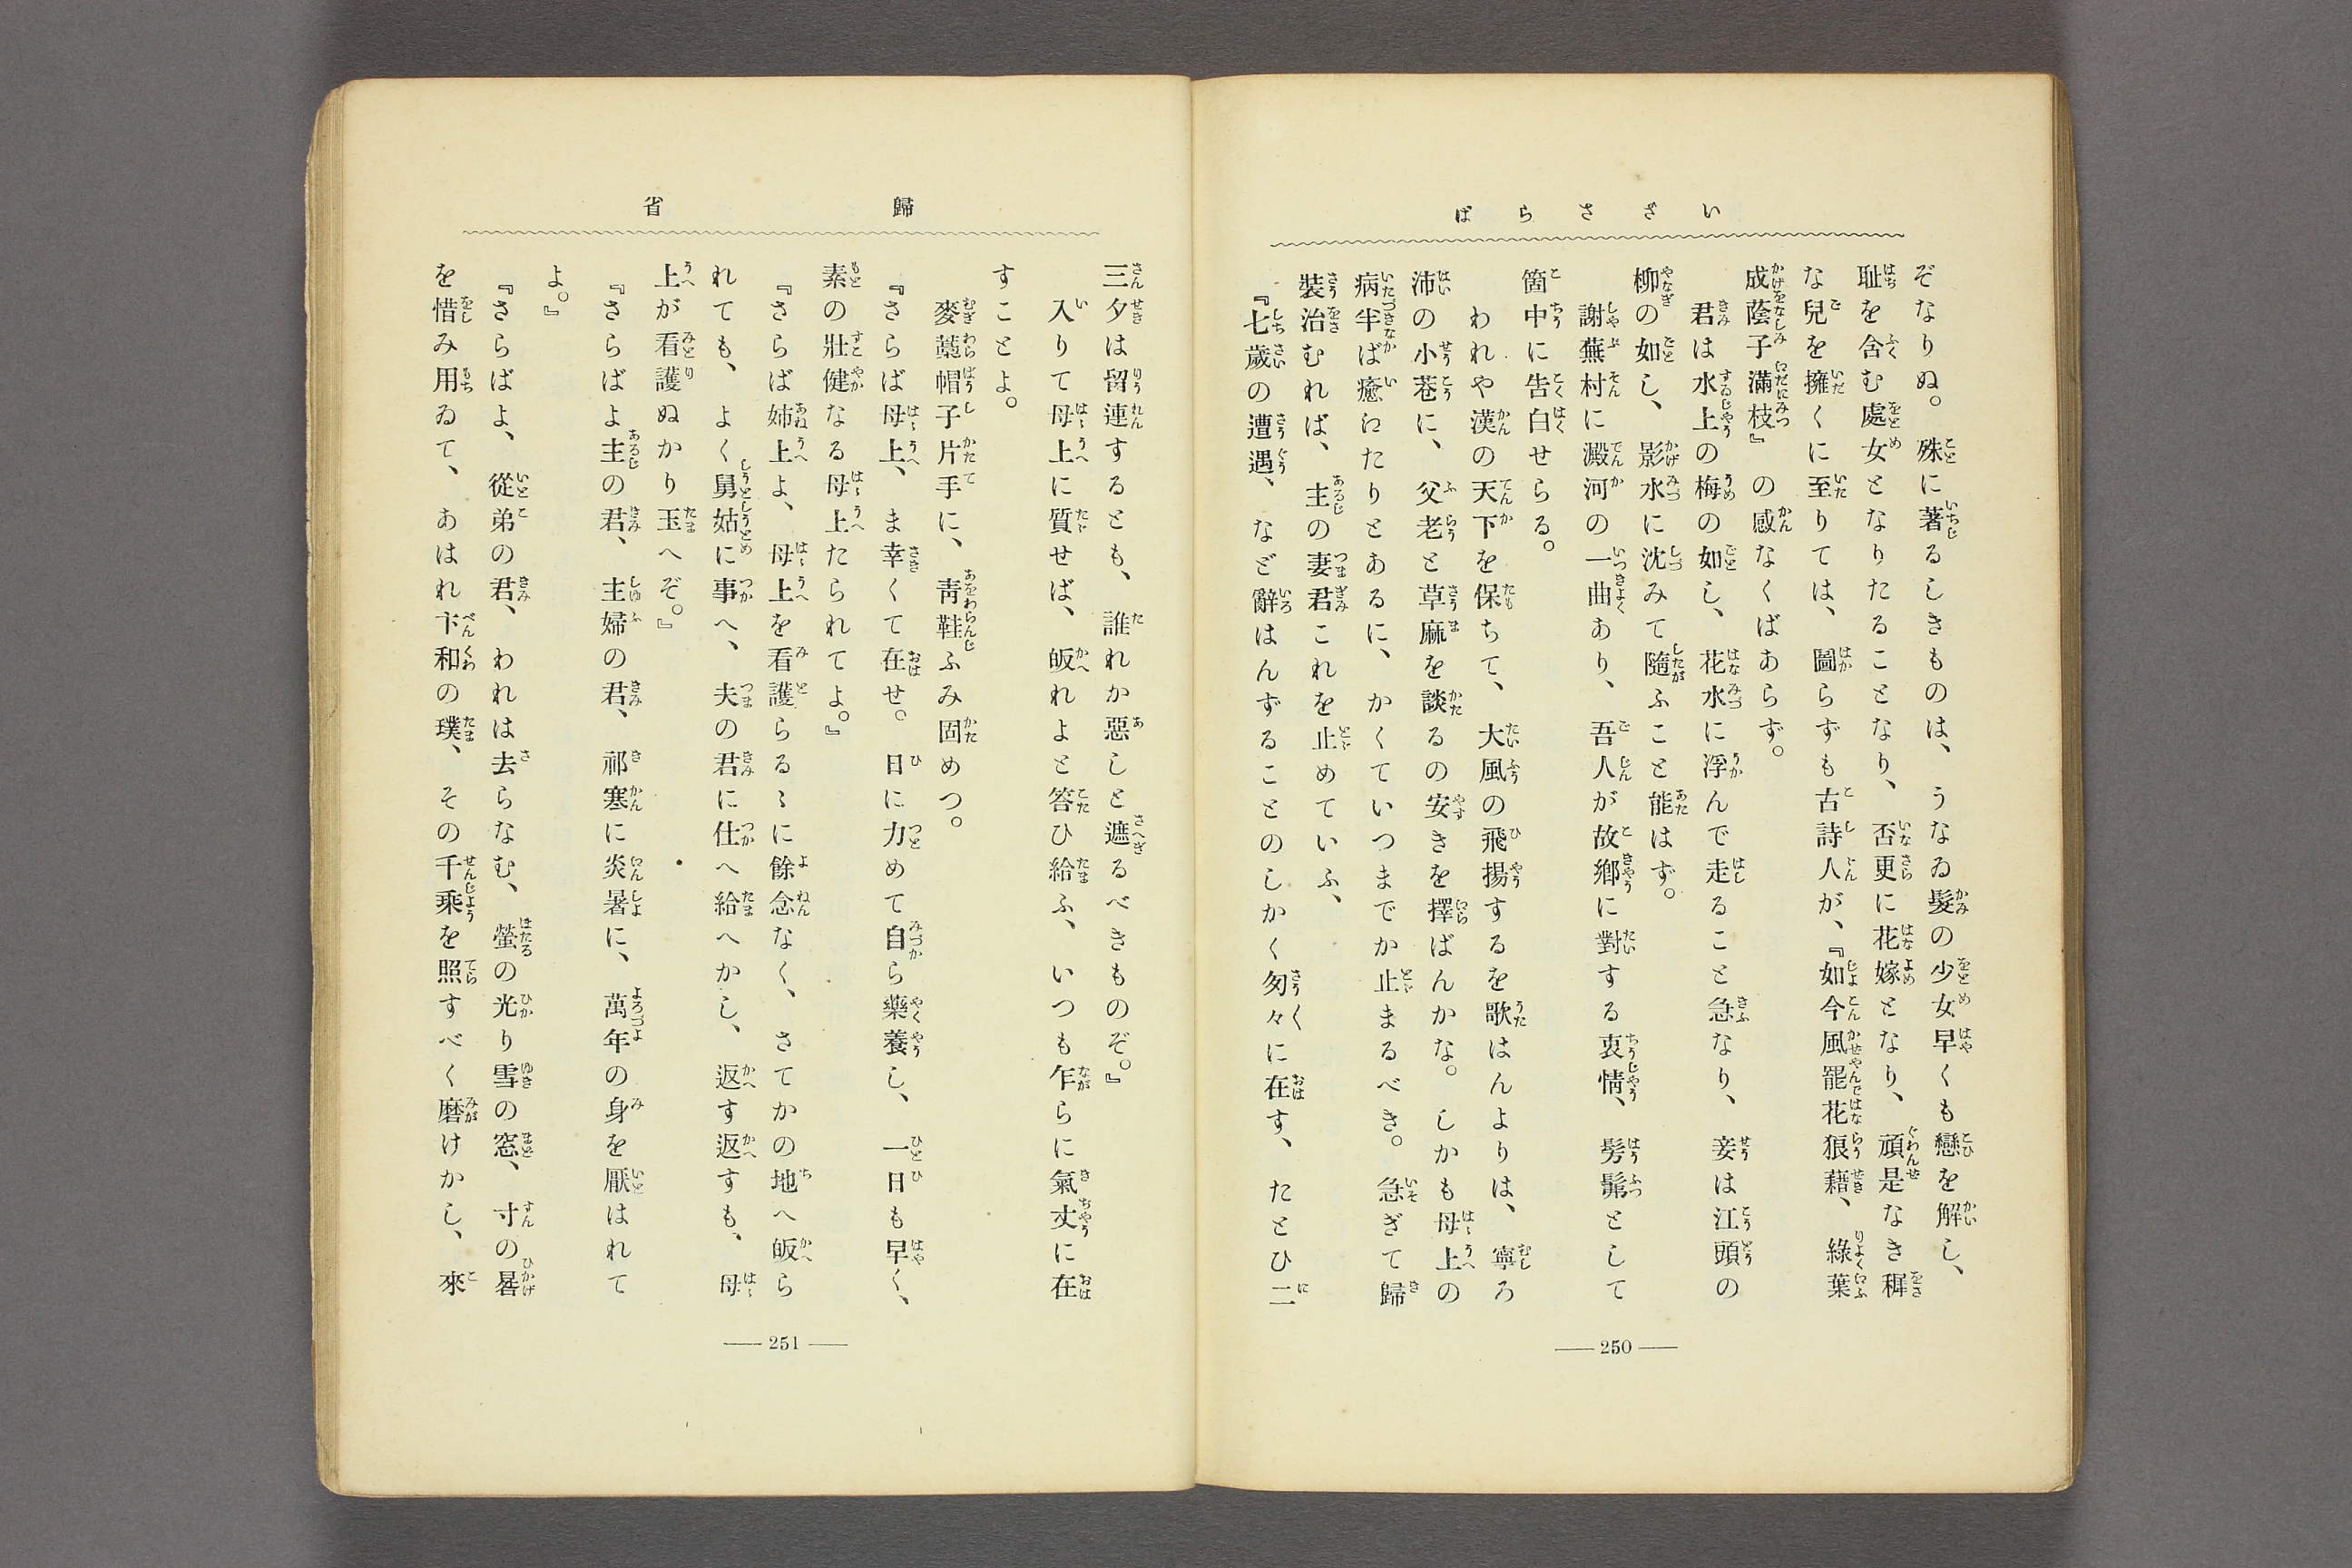 いざさらば
ぞなりぬ。殊に著るしきものは、うなゐ髮の少女早くも戀を解し、
耻を含む處女となりたることなり、否更に花嫁となり、頑是なき穉
な兒を擁くに至りては、圖らずも古詩人が、『如今風罷花狼藉、綠葉
成蔭子滿枝』の感なくばあらず。
君は水上の梅の如し、花水に浮んで走ること急なり、妾は江頭の
柳の如し、影水に沈みて隨ふこと能はず。
謝蕪村に澱河の一曲あり、吾人が故鄕に對する衷情、髣髴として
箇中に吿白せらる。
われや漢の天下を保ちて、大風の飛揚するを歌はんよりは、寧ろ
沛の小巷に、父老と草麻を談るの安きを擇ばんかな。しかも母上の
病半ば癒江たりとあるに、かくていつまでか止まるべき。急ぎて歸
裝治むれば、主の妻君これを止めていふ、
『七歲の遭遇、など辭はんずることのしかく匆々に在す、たとひ二
250
歸省
三夕は留連するとも、誰れか惡しと遮るべきものぞ。』
入りて母上に質せば、皈れよと答ひ給ふ、いつも乍らに氣丈に在
すことよ。
麥藁帽子片手に、靑鞋ふみ固めつ。
『さらば母上、ま幸くて在せ。日に力めて自ら藥養し、一日も早く、
素の壯健なる母上たられてよ。』
『さらば姉上よ、母上を看護らるゝに餘念なく、さてかの地へ皈ら
れても、よく舅姑に事へ、夫の君に仕へ給へかし、返す返すも、母
上が看護ぬかり玉へぞ。』
『さらばよ主の君、主婦の君、祁寒に炎暑に、萬年の身を厭はれて
よ。』
『さらばよ、從弟の君、われは去らなむ、螢の光り雪の窓、寸の晷
を惜み用ゐて、あはれ卞和の璞、その千乘を照すべく磨けかし、來
251